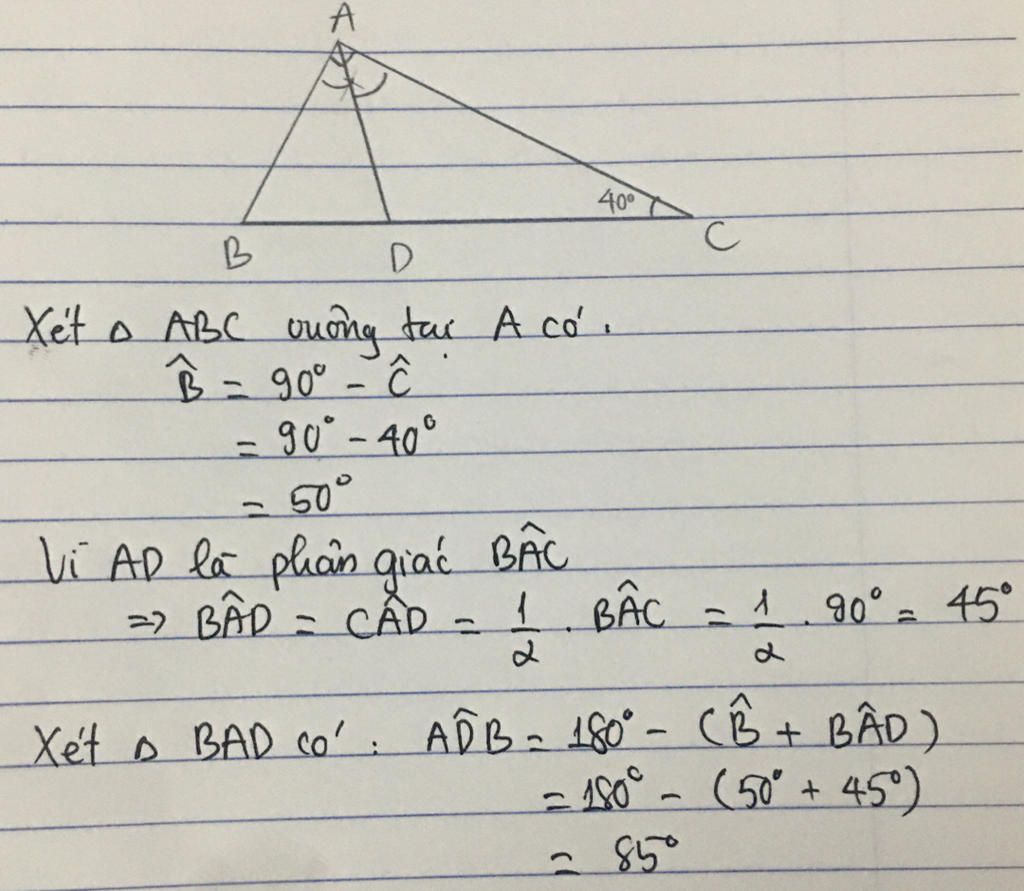 A
40°
B D C
Xét △ ABC vuông tại A có:
B̂ = 90° - Ĉ
= 90° - 40°
= 50°
Vì AD là phân giác BÂC
=> BÂD = CÂD = 1/2 . BÂC = 1/2 . 90° = 45°
Xét △ BAD có: AD̂B = 180° - (B̂ + BÂD)
= 180° - (50° + 45°)
= 85°